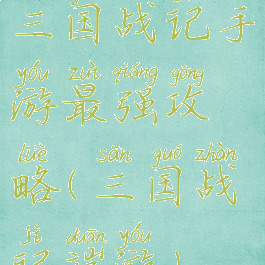 三国战记手
yóu zuì qiáng gōng
游最强攻
lüè sān guó zhàn
略(三国战
jì duān yóu
记端游)